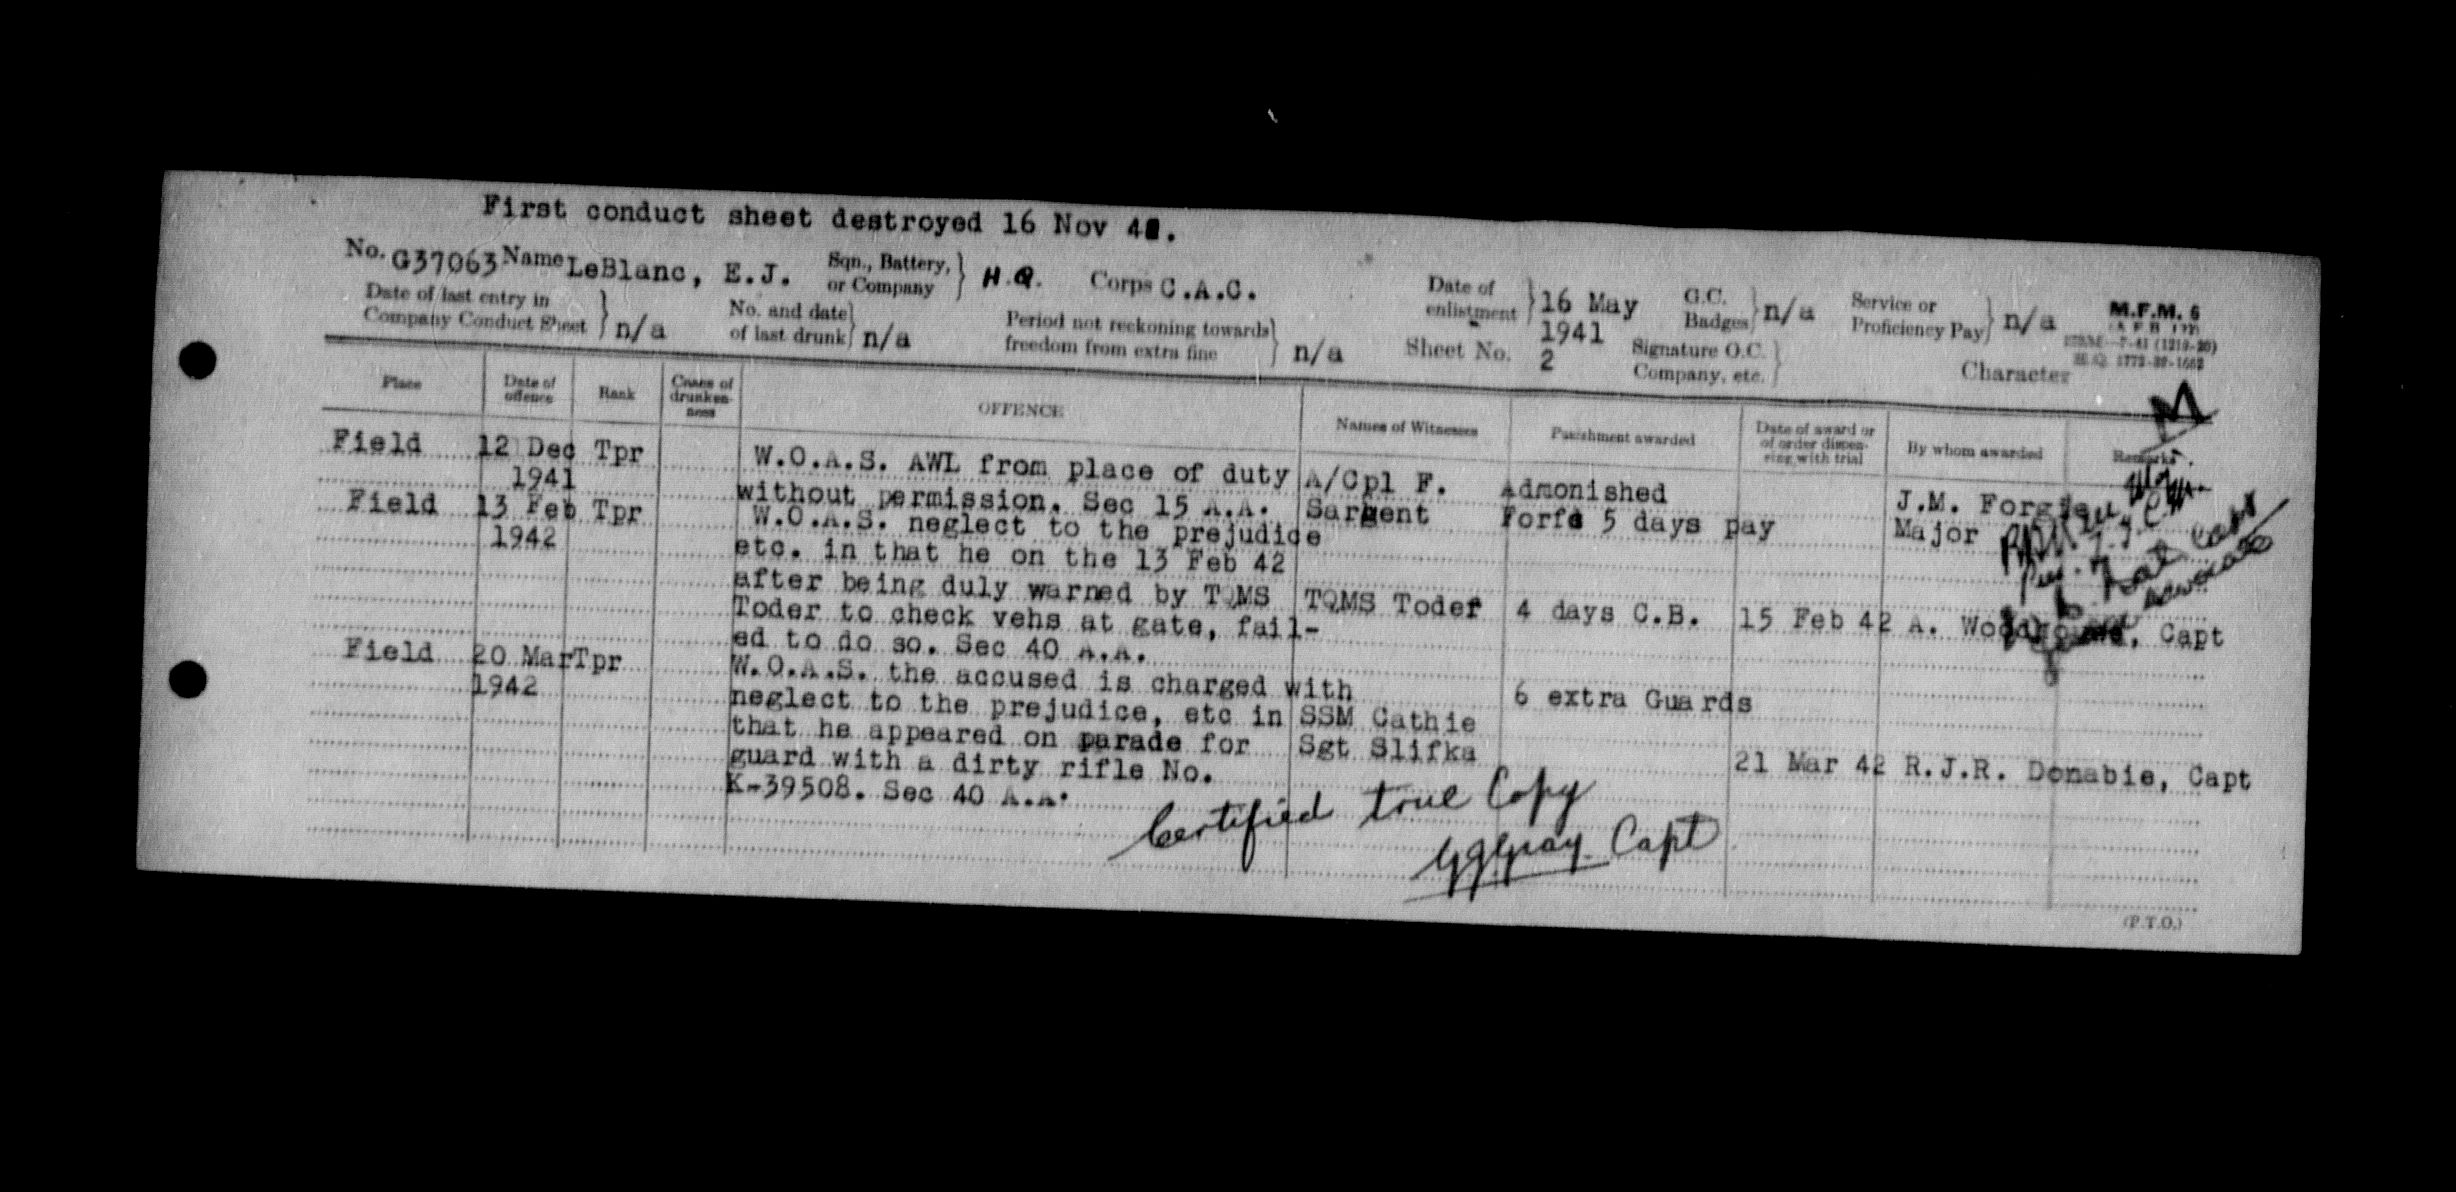 First conduct sheet destroyed 16 Nov
No. G37063 Name LeBlanc, E.J. Sqn., Battery, or Company } H.Q. Corps C.A.C. Date of enlistment } 16 May 1941 G.C. Badges } n/a Service or Proficiency Pay } n/a M.F.M. 6
Date of last entry in Company Conduct Sheet } n/a No. and date of last drunk } n/a Period not reckoning towards freedom from extra fine } n/a Sheet No. 2 Signature O.C. Company, etc. } Character
M
Place Date of offence Rank Cases of drunken-ness OFFENCE Names of Witnesses Punishment awarded Date of award or of order dispen-sing with trial By whom awarded Remarks
Field 12 Dec Tpr W.O.A.S. AWL from place of duty A/Cpl F. Admonished J.M. Forgie
1941 without permission. Sec 15 A.A. Sargent Forfd 5 days pay Major
Field 13 Feb Tpr W.O.A.S. neglect to the prejudice
1942 etc. in that he on the 13 Feb 42
after being duly warned by TQMS TQMS Toder 4 days C.B. 15 Feb 42 A. , Capt
Toder to check vehs at gate, fail-
ed to do so. Sec 40 A.A.
Field 20 Mar Tpr W.O.A.S. the accused is charged with
1942 neglect to the prejudice, etc in SSM Cathie 6 extra Guards
that he appeared on parade for Sgt Slifka
guard with a dirty rifle No. 21 Mar 42 R.J.R. Donabie, Capt
K-39508. Sec 40 A.A.
Certified true Copy
Capt
(P.T.O.)